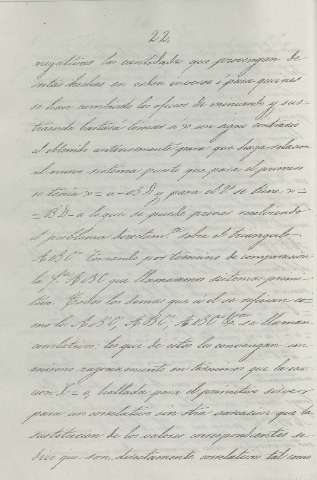 22.
negativos las cantidades que provengan de
restas hechas en orden inverso i para quienes
se haya cambiado los oficios de minuendo y sus-
traendo bastará tomar a x con signo contrario
al obtenido anteriormente para que haga relacion
al nuevo sistema puesto que para el primero
se tenia x = a - BD y para el 2º se tiene x =
= BD - a lo que se puede provar resolviendo
el problema sobre el triangulo
ABC. Teniendo por termino de comparacion
la ABC que llamaremos sistema primi-
tivo. Todos los demas que a el se refieran co-
mo los ABC, ABC, ABC &ª se llaman
correlativos: los que de estos les convengan un
mismo razonamiento en terminos que la ecua-
cion X = 0, hallada para el primitivo sirve
para un correlativo sin otra variacion que la
sustitucion de los valores correspondientes se
dice que son directamente correlativos tal como